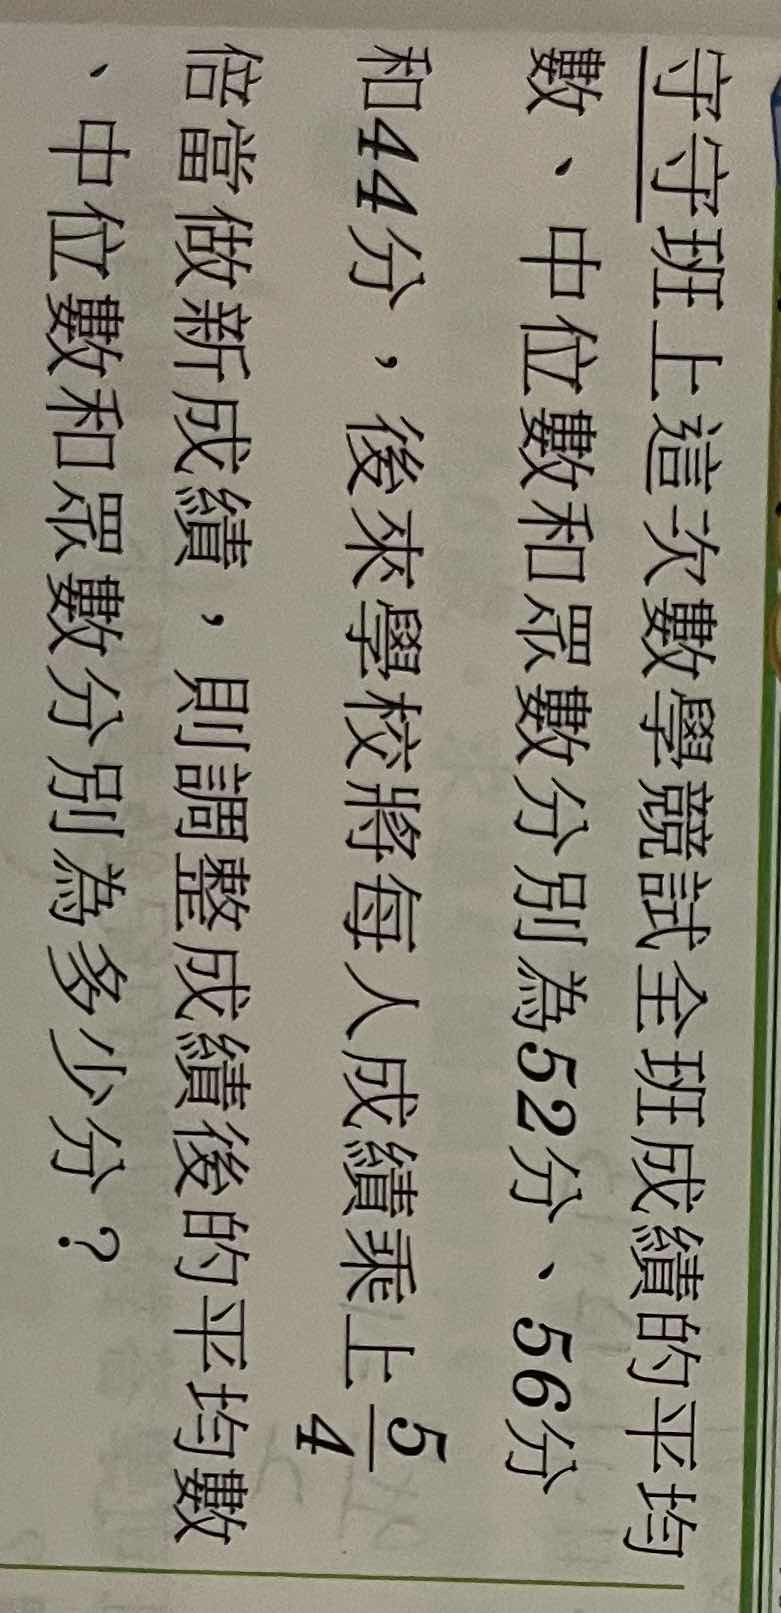 守守班上這次數學競試全班成績的平均
數、中位數和眾數分別為52分、56分
和44分，後來學校將每人成績乘上5/4
倍當做新成績，則調整成績後的平均數
、中位數和眾數分別為多少分？